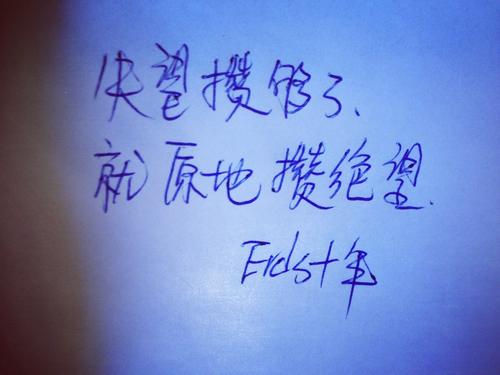 失望攒够了、
就原地攒绝望.
Erdst年